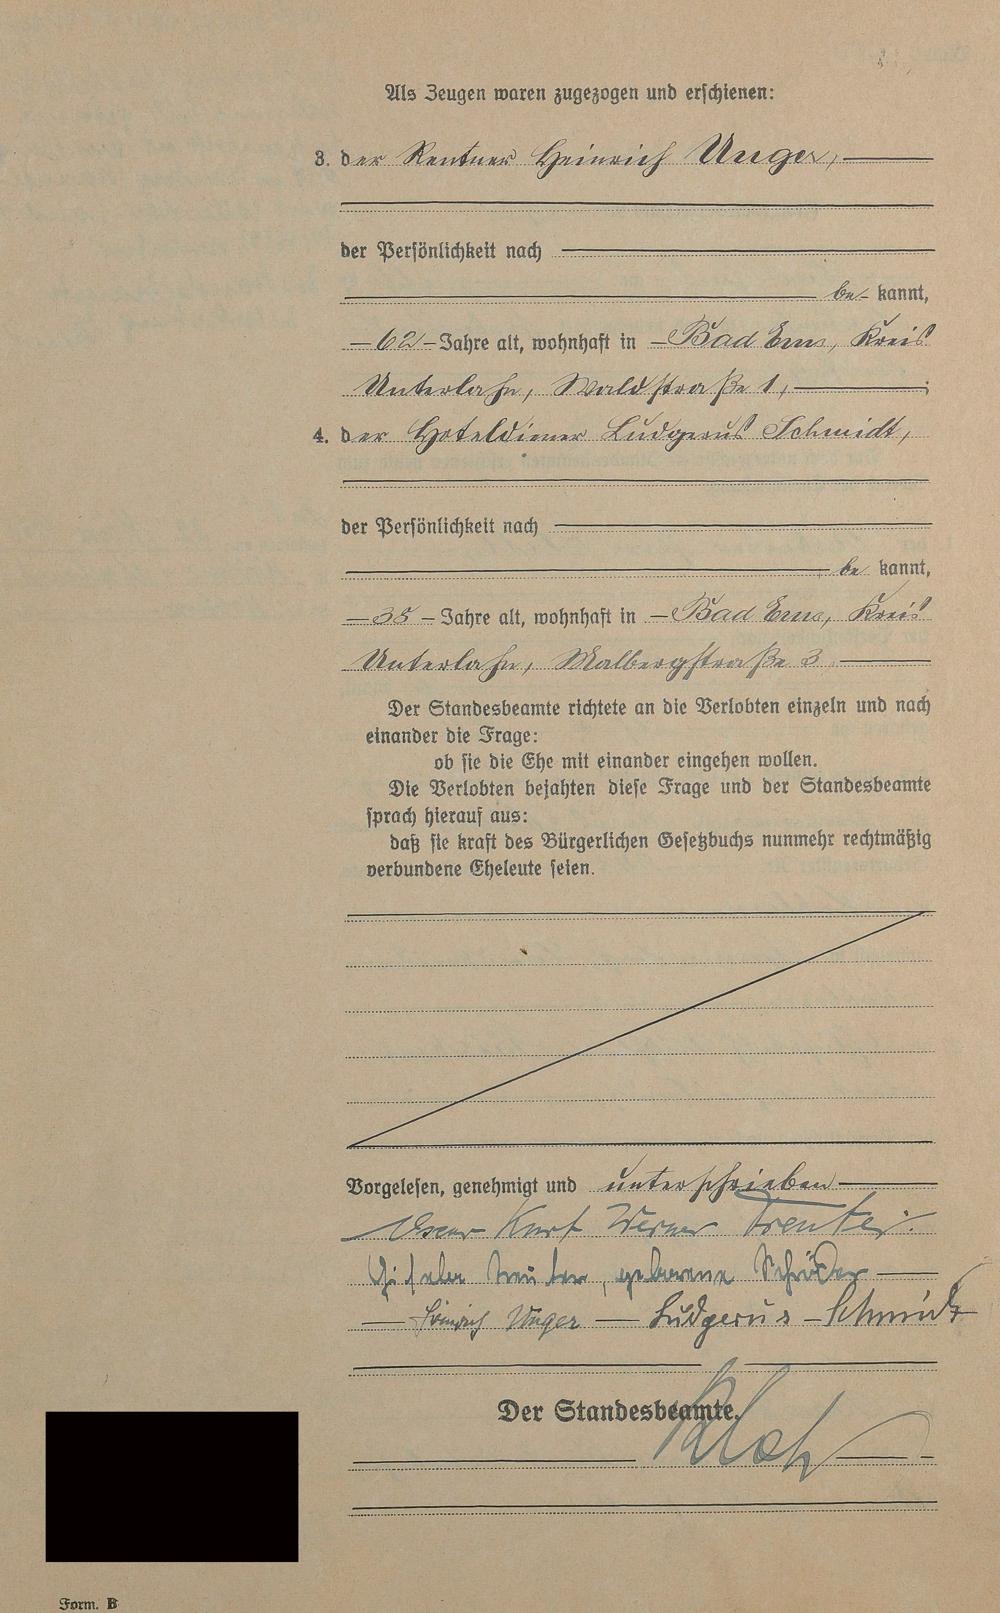 Als Zeugen waren zugezogen und erschienen:
3. der Rentner Heinrich Unger,
der Persönlichkeit nach
be- kannt,
- 62 - Jahre alt, wohnhaft in - Bad Ems, Kreis
Unterlahn, Waldstraße 1,
4. der Hoteldiener Ludgerus Schmidt,
der Persönlichkeit nach
be kannt,
- 35 - Jahre alt, wohnhaft in - Bad Ems, Kreis
Unterlahn, Malbergstraße 3
Der Standesbeamte richtete an die Verlobten einzeln und nach
einander die Frage:
ob sie die Ehe mit einander eingehen wollen.
Die Verlobten bejahten diese Frage und der Standesbeamte
sprach hierauf aus:
daß sie kraft des Bürgerlichen Gesetzbuchs nunmehr rechtmäßig
verbundene Eheleute seien.
Vorgelesen, genehmigt und unterschrieben
Oscar Kurt Werner
geborene Schröder
Heinrich Unger - Ludgerus - Schmidt
Der Standesbeamte.
Form. B